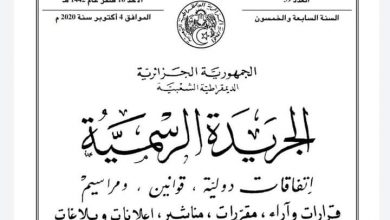 الأحد 16 صفر عام 1442 هـ
العدد 59
الموافق 4 أكتوبر سنة 2020 م
السنة السابعة والخمسون
الجمهورية الجزائرية
الديمقراطية الشعبية
الجريدة الرسمية
اتفاقات دولية ، قوانين ، ومراسيم
قرارات وآراء ، مقررات ، مناشير ، إعلانات وبلاغات